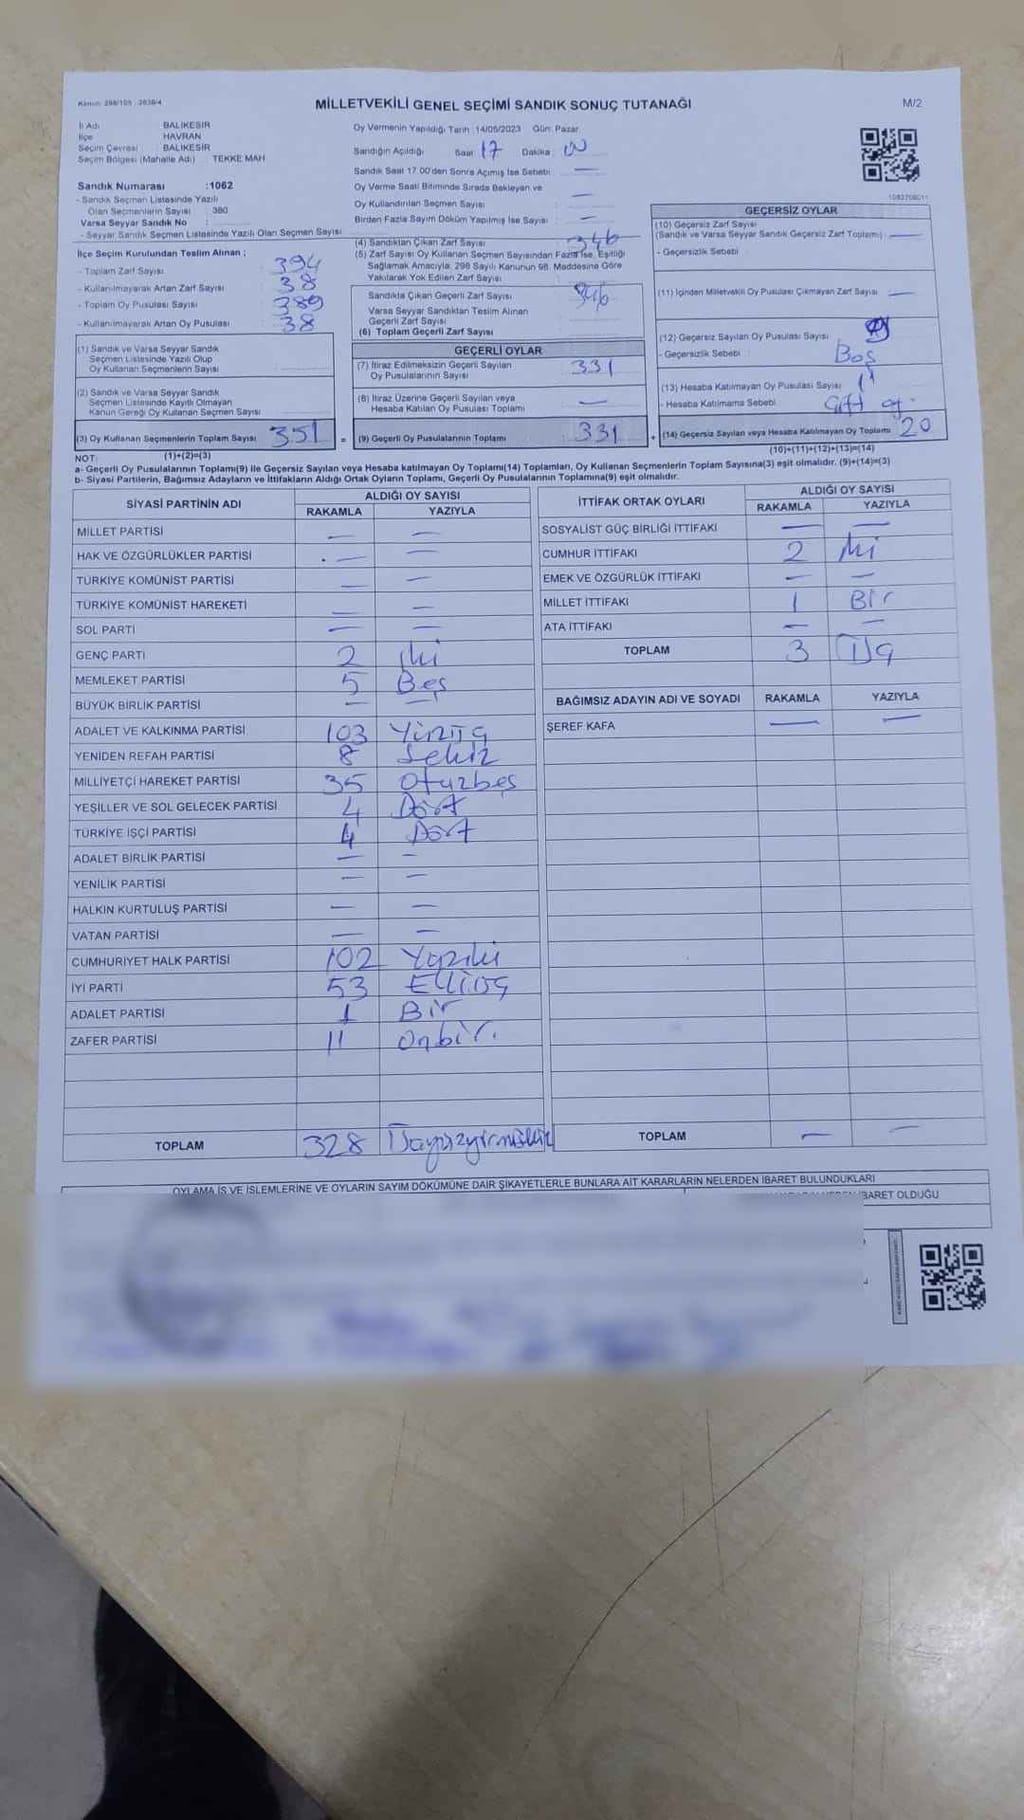 Kanun: 298/105 : 2839/4
MİLLETVEKİLİ GENEL SEÇİMİ SANDIK SONUÇ TUTANAĞI
M/2
İl Adı BALIKESİR
İlçe HAVRAN
Seçim Çevresi BALIKESİR
Seçim Bölgesi (Mahalle Adı) TEKKE MAH
Sandık Numarası :1062
- Sandık Seçmen Listesinde Yazılı
Olan Seçmenlerin Sayısı : 380
Varsa Seyyar Sandık No :
- Seyyar Sandık Seçmen Listesinde Yazılı Olan Seçmen Sayısı
Oy Vermenin Yapıldığı Tarih :14/05/2023 Gün: Pazar
Sandığın Açıldığı Saat: 17 Dakika: 00
Sandık Saat 17.00'den Sonra Açılmış İse Sebebi —
Oy Verme Saati Bitiminde Sırada Bekleyen ve
Oy Kullandırılan Seçmen Sayısı —
Birden Fazla Sayım Döküm Yapılmış İse Sayısı —
İlçe Seçim Kurulundan Teslim Alınan ;
- Toplam Zarf Sayısı 394
- Kullanılmayarak Artan Zarf Sayısı 38
- Toplam Oy Pusulası Sayısı 389
- Kullanılmayarak Artan Oy Pusulası 38
(1) Sandık ve Varsa Seyyar Sandık
Seçmen Listesinde Yazılı Olup
Oy Kullanan Seçmenlerin Sayısı
(2) Sandık ve Varsa Seyyar Sandık
Seçmen Listesinde Kayıtlı Olmayan
Kanun Gereği Oy Kullanan Seçmen Sayısı
(3) Oy Kullanan Seçmenlerin Toplam Sayısı 351
(4) Sandıktan Çıkan Zarf Sayısı 346
(5) Zarf Sayısı Oy Kullanan Seçmen Sayısından Fazla İse, Eşitliği
Sağlamak Amacıyla, 298 Sayılı Kanunun 98. Maddesine Göre
Yakılarak Yok Edilen Zarf Sayısı
Sandıkta Çıkan Geçerli Zarf Sayısı 346
Varsa Seyyar Sandıktan Teslim Alınan
Geçerli Zarf Sayısı
(6) Toplam Geçerli Zarf Sayısı
GEÇERLİ OYLAR
(7) İtiraz Edilmeksizin Geçerli Sayılan
Oy Pusulalarının Sayısı 331
(8) İtiraz Üzerine Geçerli Sayılan veya
Hesaba Katılan Oy Pusulası Toplamı —
= (9) Geçerli Oy Pusulalarının Toplamı 331
GEÇERSİZ OYLAR
(10) Geçersiz Zarf Sayısı
(Sandık ve Varsa Seyyar Sandık Geçersiz Zarf Toplamı) —
- Geçersizlik Sebebi
(11) İçinden Milletvekili Oy Pusulası Çıkmayan Zarf Sayısı —
(12) Geçersiz Sayılan Oy Pusulası Sayısı
- Geçersizlik Sebebi Boş
(13) Hesaba Katılmayan Oy Pusulası Sayısı
- Hesaba Katılmama Sebebi Çift oy.
+ (14) Geçersiz Sayılan veya Hesaba Katılmayan Oy Toplamı 20
NOT: (1)+(2)=(3) (10)+(11)+(12)+(13)=(14)
a- Geçerli Oy Pusulalarının Toplamı(9) ile Geçersiz Sayılan veya Hesaba katılmayan Oy Toplamı(14) Toplamları, Oy Kullanan Seçmenlerin Toplam Sayısına(3) eşit olmalıdır. (9)+(14)=(3)
b- Siyasi Partilerin, Bağımsız Adayların ve İttifakların Aldığı Ortak Oyların Toplamı, Geçerli Oy Pusulalarının Toplamına(9) eşit olmalıdır.
SİYASİ PARTİNİN ADI ALDIĞI OY SAYISI
RAKAMLA YAZIYLA
MİLLET PARTİSİ — —
HAK VE ÖZGÜRLÜKLER PARTİSİ — —
TÜRKİYE KOMÜNİST PARTİSİ — —
TÜRKİYE KOMÜNİST HAREKETİ — —
SOL PARTİ — —
GENÇ PARTİ 2 iki
MEMLEKET PARTİSİ 5 Beş
BÜYÜK BİRLİK PARTİSİ — —
ADALET VE KALKINMA PARTİSİ 103 Yüzüç
YENİDEN REFAH PARTİSİ 8 Sekiz
MİLLİYETÇİ HAREKET PARTİSİ 35 Otuzbeş
YEŞİLLER VE SOL GELECEK PARTİSİ 4 Dört
TÜRKİYE İŞÇİ PARTİSİ 4 Dört
ADALET BİRLİK PARTİSİ — —
YENİLİK PARTİSİ — —
HALKIN KURTULUŞ PARTİSİ — —
VATAN PARTİSİ — —
CUMHURİYET HALK PARTİSİ 102 Yüziki
İYİ PARTİ 53 Elliüç
ADALET PARTİSİ 1 Bir
ZAFER PARTİSİ 11 Onbir.
TOPLAM 328 Üçyüzyirmisekiz
İTTİFAK ORTAK OYLARI ALDIĞI OY SAYISI
RAKAMLA YAZIYLA
SOSYALİST GÜÇ BİRLİĞİ İTTİFAKI — —
CUMHUR İTTİFAKI 2 iki
EMEK VE ÖZGÜRLÜK İTTİFAKI — —
MİLLET İTTİFAKI 1 Bir
ATA İTTİFAKI — —
TOPLAM 3 Üç
BAĞIMSIZ ADAYIN ADI VE SOYADI RAKAMLA YAZIYLA
ŞEREF KAFA — —
TOPLAM — —
OYLAMA İŞ VE İŞLEMLERİNE VE OYLARIN SAYIM DÖKÜMÜNE DAİR ŞİKAYETLERLE BUNLARA AİT KARARLARIN NELERDEN İBARET BULUNDUKLARI
İBARET OLDUĞU